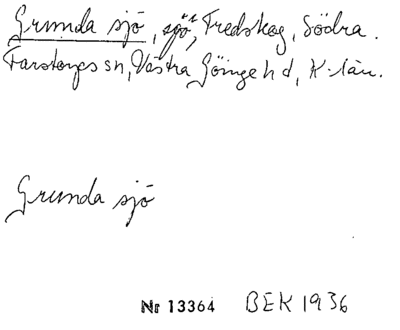 Grunda sjö, sjö, Fredskog, Södra.
Farstorps sn, Västra Göinge hd, K-län.
Grunda sjö
Nr 13364 BEK 1936